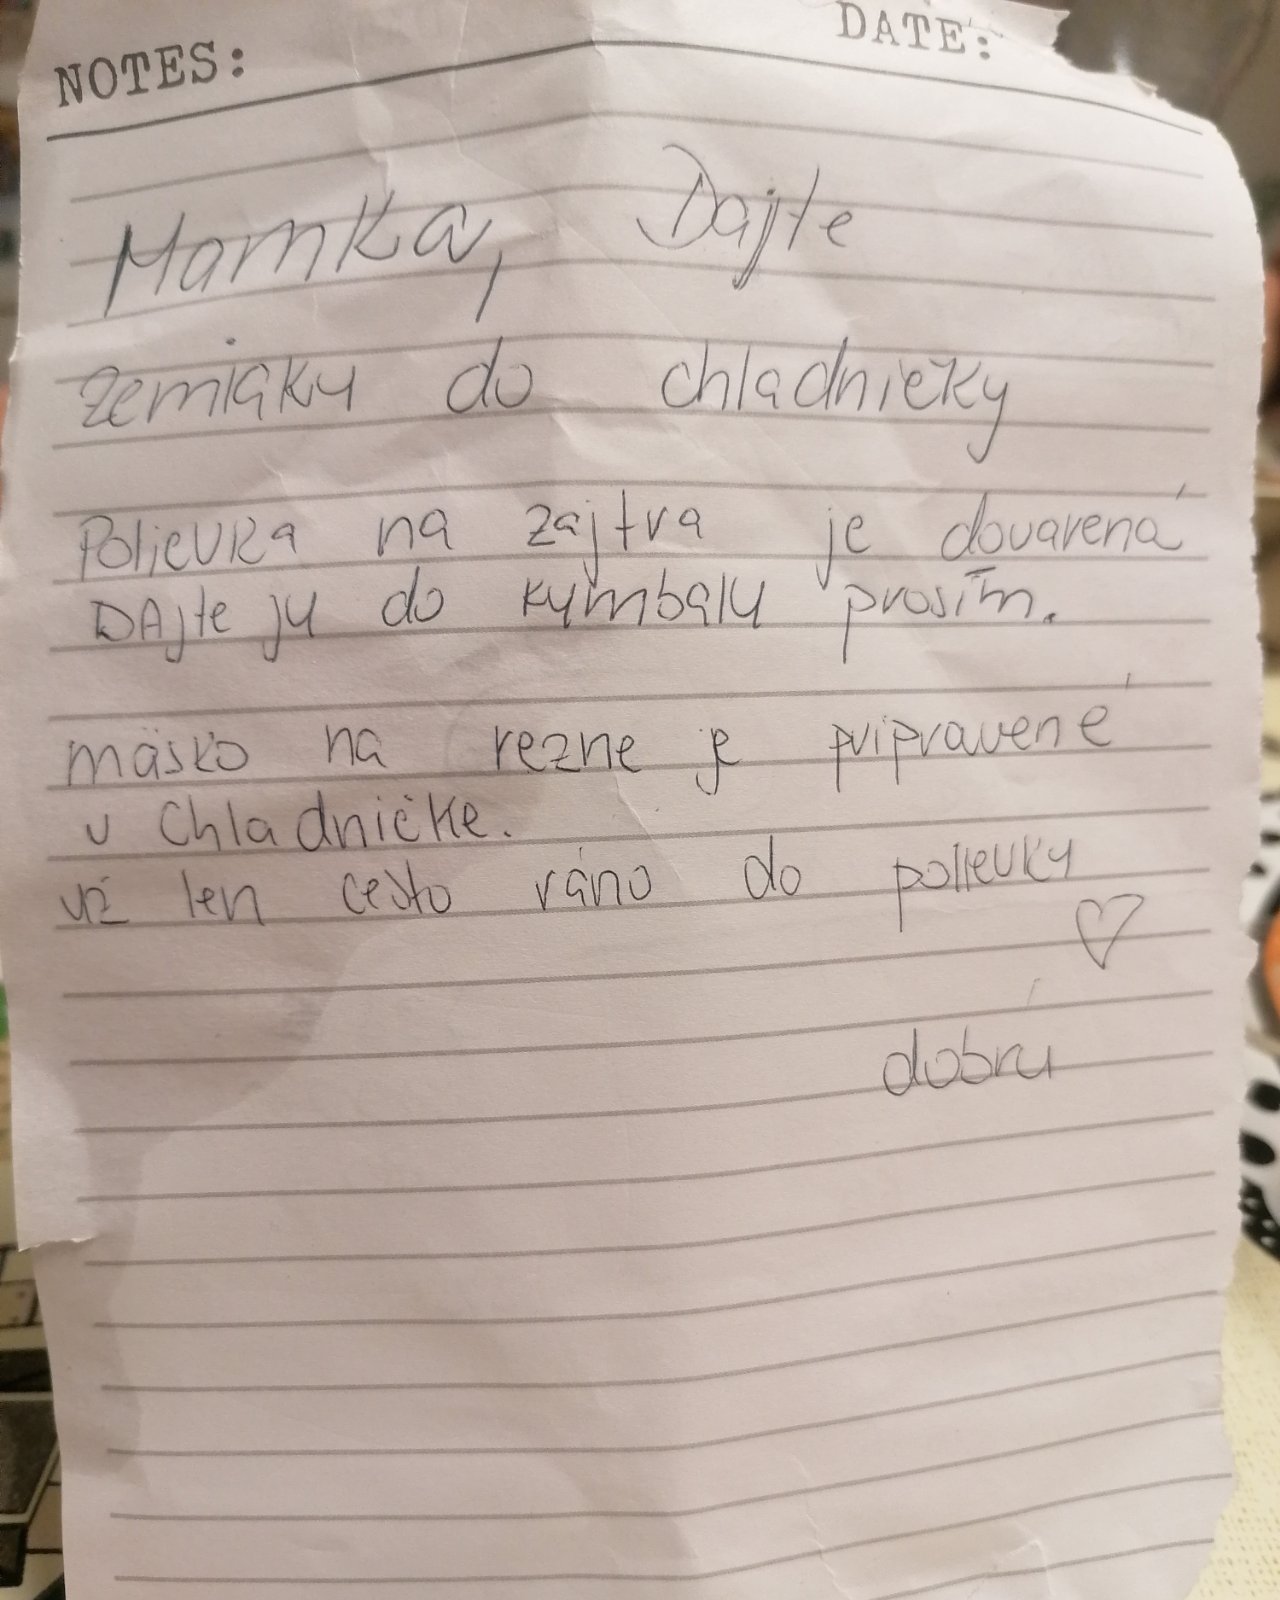 NOTES: DATE:
Mamka, Dajte
zemiaky do chladničky
Polievka na zajtra je dovarená
DAjte ju do kymbaly prosím.
mäsko na rezne je pripravené
v Chladničke.
už len cesto ráno do polievky
♡
dobrú